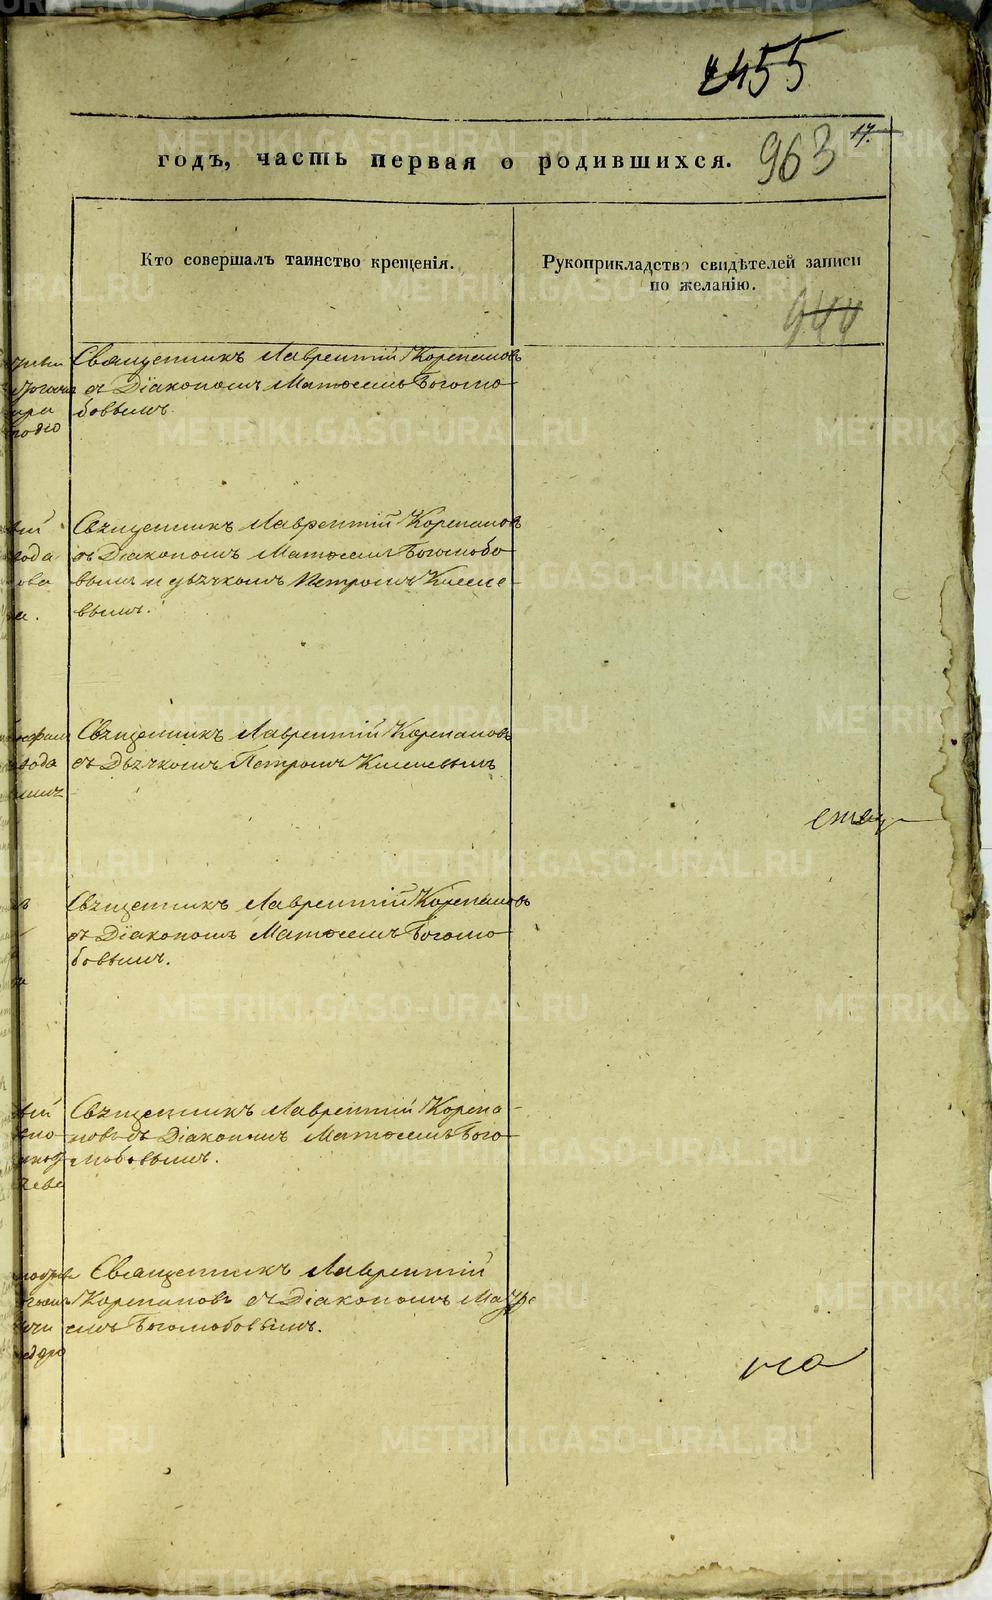 455
годъ, часть первая о родившихся.
963
17.
Кто совершалъ таинство крещенія.
Рукоприкладство свидѣтелей записи
по желанію.
944
Священникъ Лаврентій Корепановъ
съ Діакономъ Матѳеемъ Боголю-
бовымъ.
Свящѣнникъ Лаврентій Корепановъ
съ Діакономъ Матѳеемъ Боголюбо
вымъ и дьячкомъ Петромъ Киселе-
вымъ.
Священникъ Лаврентій Корепановъ
съ Дьячкомъ Петромъ Киселевымъ
Священникъ Лаврентій Корепановъ
съ Діакономъ Матѳеемъ Боголю
бовымъ.
Священникъ Лаврентій Корепа-
новъ съ Діакономъ Матѳеемъ Бого
любовымъ.
Священникъ Лаврентій
Корепановъ съ Діакономъ Матѳе
емъ Боголюбовымъ.
на
METRIKI.GASO-URAL.RU